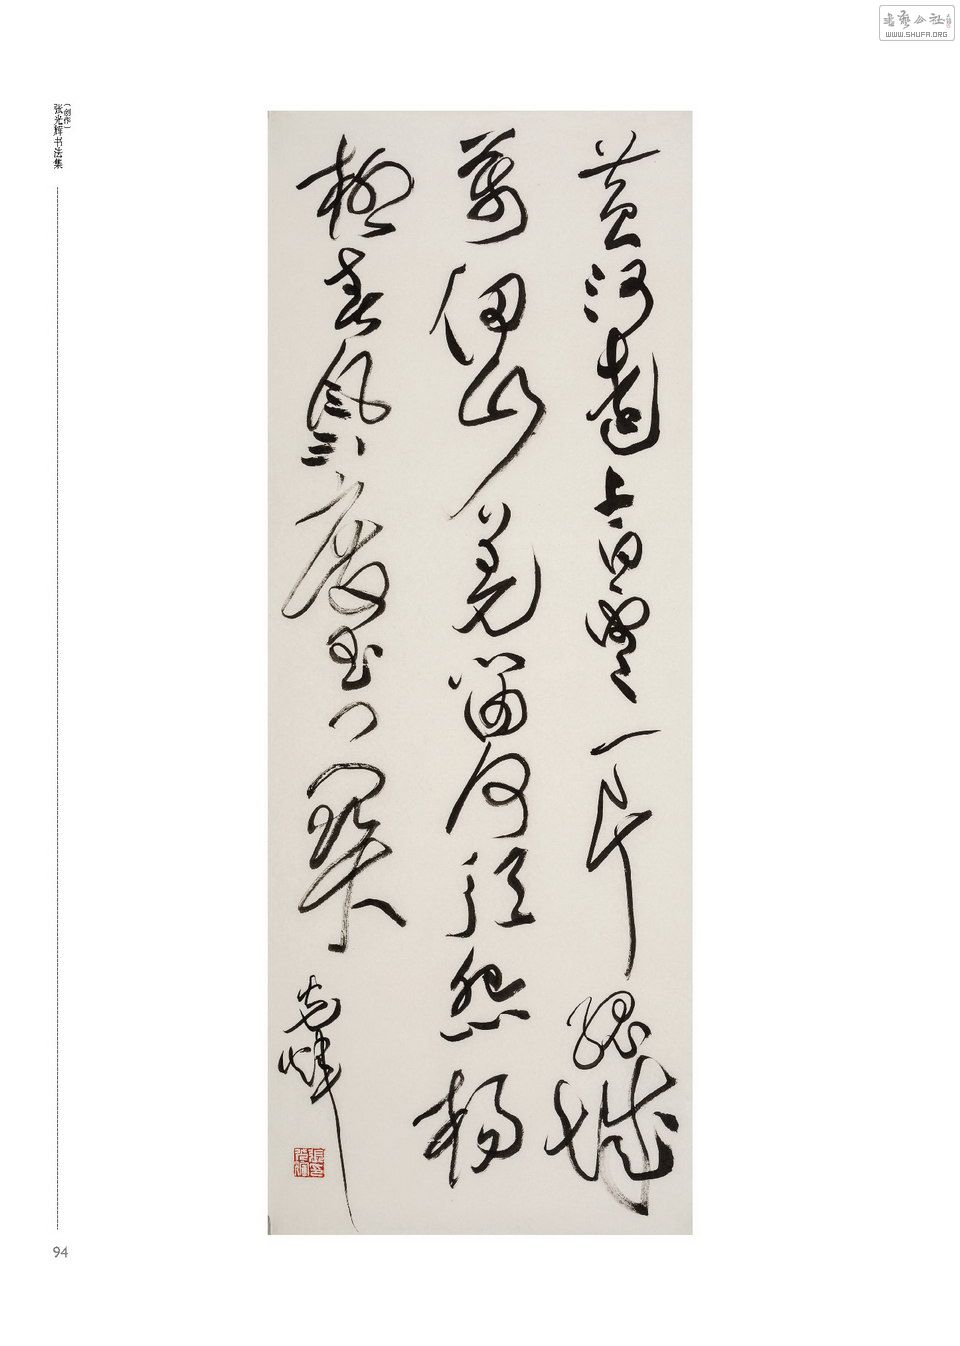 书艺公社
WWW.SHUFA.ORG
(创作)
张光辉书法集
黄河远上白云一片孤城
万仞山羌笛何须怨杨
柳春风不度玉门关
光辉
94